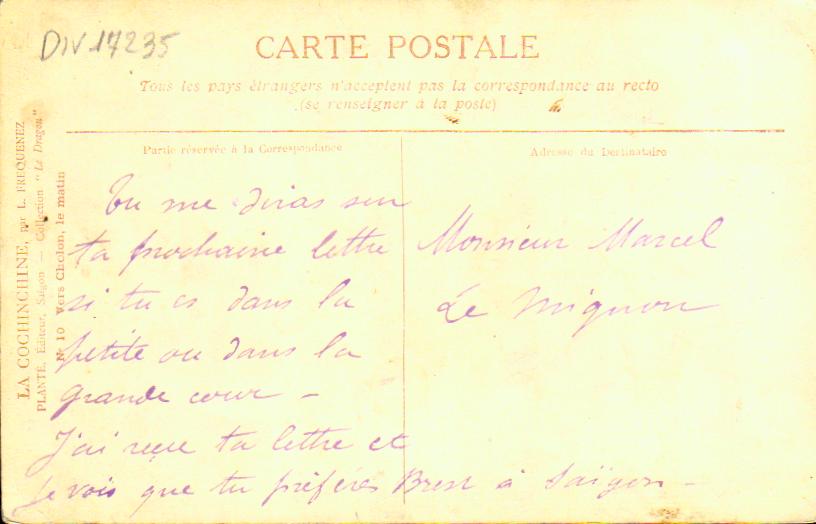 DIV 17235
CARTE POSTALE
Tous les pays étrangers n'acceptent pas la correspondance au recto
(se renseigner à la poste)
Partie réservée à la Correspondance
Adresse du Destinataire
LA COCHINCHINE, par L. FREQUENEZ
PLANTÉ, Éditeur, Saigon — Collection "Le Dragon"
N° 10 Vers Cholon, le matin
Tu me diras sur
ta prochaine lettre
si tu es dans la
petite ou dans la
grande cour –
J'ai reçue ta lettre et
je vois que tu préfères Brest à Saïgon –
Monsieur Marcel
Le Mignon